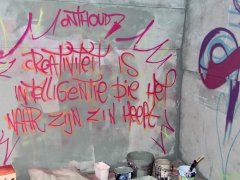 ONTHOUD:
CREATIVITEIT IS
INTELLIGENTIE DIE HET
NAAR ZIJN ZIN HEEFT!